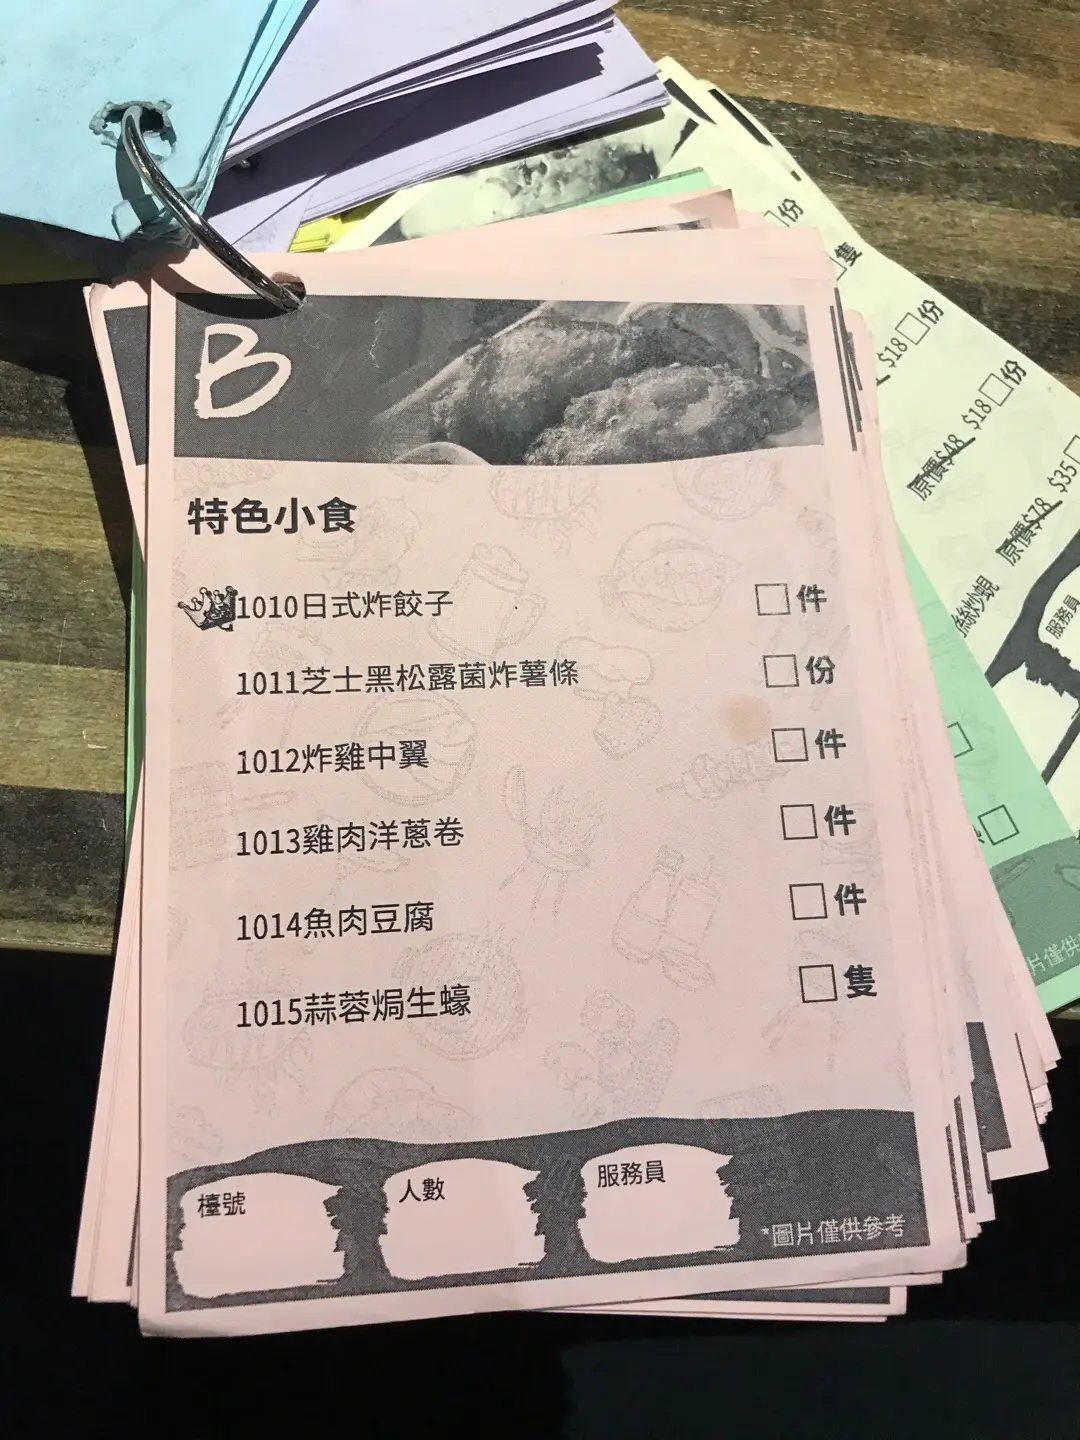 B
特色小食
1010日式炸餃子 件
1011芝士黑松露菌炸薯條 份
1012炸雞中翼 件
1013雞肉洋蔥卷 件
1014魚肉豆腐 件
1015蒜蓉焗生蠔 隻
檯號
人數
服務員
*圖片僅供參考
份
隻
$18 份
原價$48 $18 份
原價$78 $35
絲炒蜆
服務員
片僅供